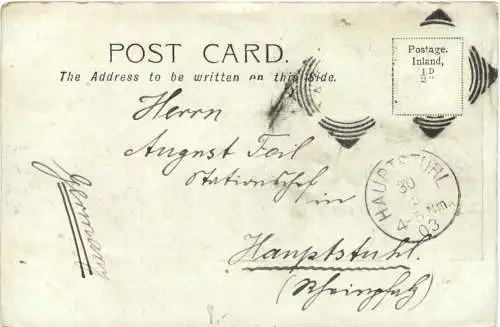 POST CARD.
The Address to be written on this Side.
Postage.
Inland,
½ D
Herrn
August Foil
Stationschef
in
Hauptstuhl.
(Rheinpfalz)
Germany
HAUPTSTUHL
30
4-5 Nm.
03